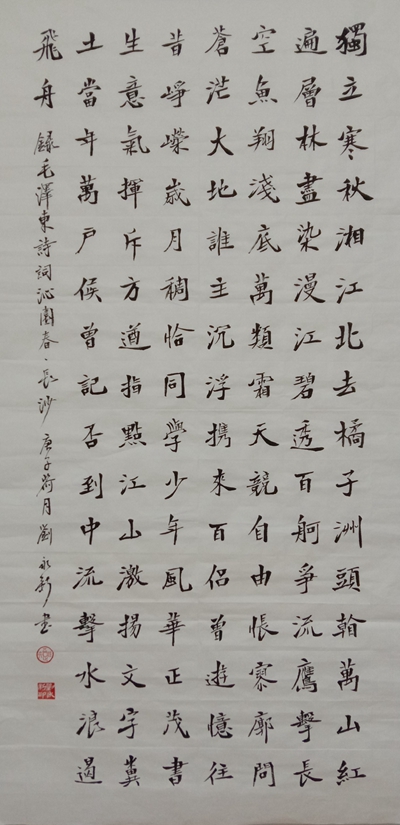 獨立寒秋湘江北去橘子洲頭翰萬山紅
遍層林盡染漫江碧透百舸爭流鷹擊長
空魚翔淺底萬類霜天競自由悵寥廓問
蒼茫大地誰主沉浮携來百侶曾遊憶往
昔崢嶸歲月稠恰同學少年風華正茂書
生意氣揮斥方遒指點江山激揚文字糞
土當年萬戶侯曾記否到中流擊水浪遏
飛舟 錄毛澤東詩詞沁園春·長沙 庚子荷月劉永新書